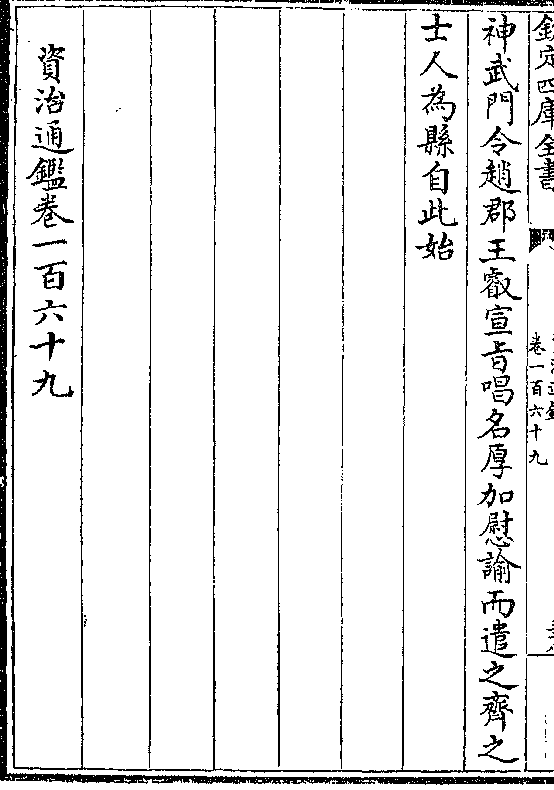 欽定四庫全書
卷一百六十九
神武門令趙郡王叡宣旨唱名厚加慰諭而遣之齊之
士人為縣自此始
資治通鑑卷一百六十九